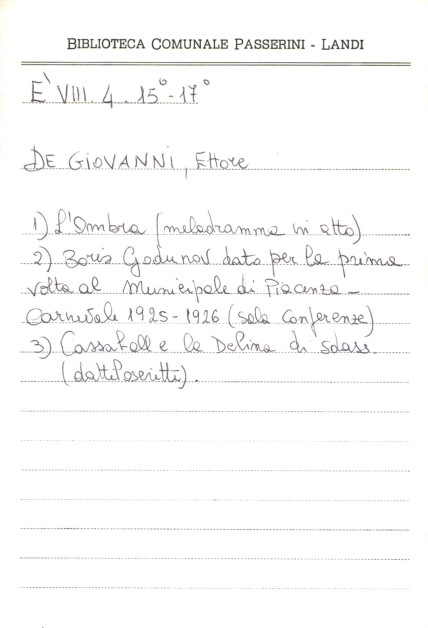 BIBLIOTECA COMUNALE PASSERINI - LANDI
È VIII. 4. 15° - 17°
DE GIOVANNI, Ettore
1) L'Ombra (melodramma in atto)
2) Boris Godunov dato per la prima
volta al Municipale di Piacenza -
Carnevale 1925 - 1926 (sala Conferenze)
3) e la Delina di
(dattiloscritti).